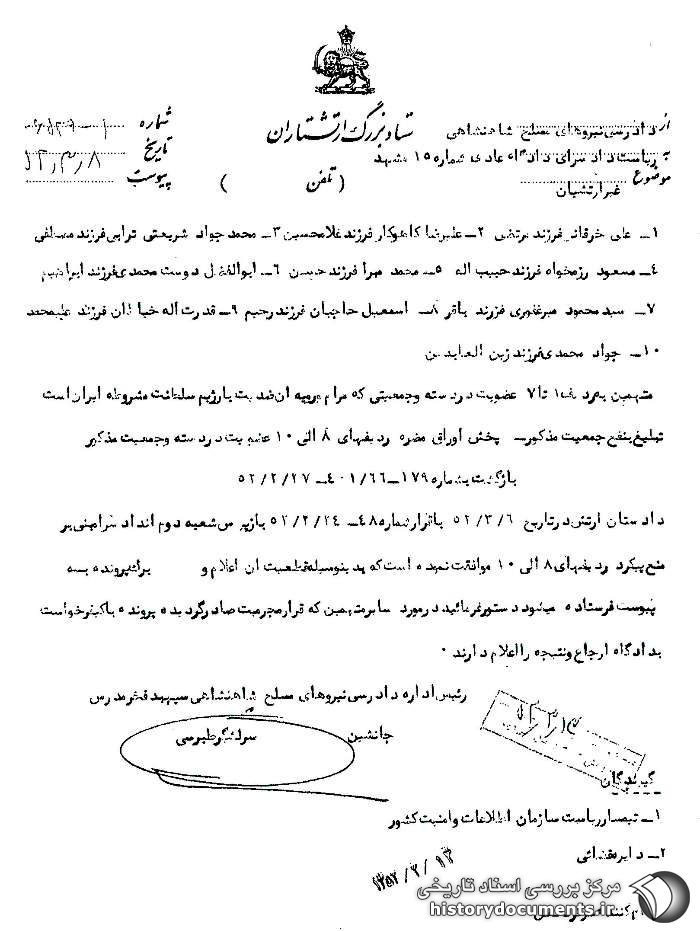 ستاد بزرگ ارتشتاران
از دادرسی نیروهای مسلح شاهنشاهی
شماره
به ریاست دادسرای دادگاه عادی شماره ۱۵ مشهد
تاریخ ۵۲٫۳٫۸
موضوع غیر ارتشیان
(تلفن )
پیوست
۱ـ علی فرزند مرتضی ۲ـ علیرضا کاهوکار فرزند غلامحسین ۳ـ محمد جواد شریعتی ترابی فرزند مصطفی
۴ـ مسعود رزمخواه فرزند حبیب اله ۵ـ محمد فرزند حسین ۶ـ ابوالفضل دوست محمدی فرزند ابراهیم
۷ـ سید محمود میرغفوری فرزند باقر ۸ـ اسمعیل حاجیان فرزند رحیم ۹ـ قدرت اله فرزند علیمحمد
۱۰ـ جواد محمدی فرزند زین العابدین
متهمین به ردیف ۱ تا ۷ عضویت در دسته و جمعیتی که مرام و رویه آن ضدیت با رژیم سلطنت مشروطه ایران است
تبلیغ بنفع جمعیت مذکور ـ پخش اوراق مضره ردیفهای ۸ الی ۱۰ عضویت در دسته و جمعیت مذکور
بازگشت بشماره ۱۷۹ـ۴۰۱/۶۶ ـ ۵۲/۲/۲۷
دادستان ارتش در تاریخ ۵۲/۳/۶ با قرار شماره ۴۸ـ ۵۲/۲/۲۴ بازپرس شعبه دوم دایر بر
منع پیگرد ردیفهای ۸ الی ۱۰ موافقت نموده است که بدینوسیله قطعیت آن اعلام و پرونده
پیوست فرستاده میشود دستور فرمائید در مورد سایر متهمین که قرار مجرمیت صادر گردیده پرونده با کیفرخواست
بدادگاه ارجاع و نتیجه را اعلام دارند ۰
رئیس اداره دادرسی نیروهای مسلح شاهنشاهی سپهبد فخر مدرس
جانشین سرلشگر طبرسی
گیرندگان
۱ـ تیمسار ریاست سازمان اطلاعات و امنیت کشور
۲ـ دایره قضائی
۱۳۵۲/۳/۱۳
مرکز بررسی اسناد تاریخی
historydocuments.ir